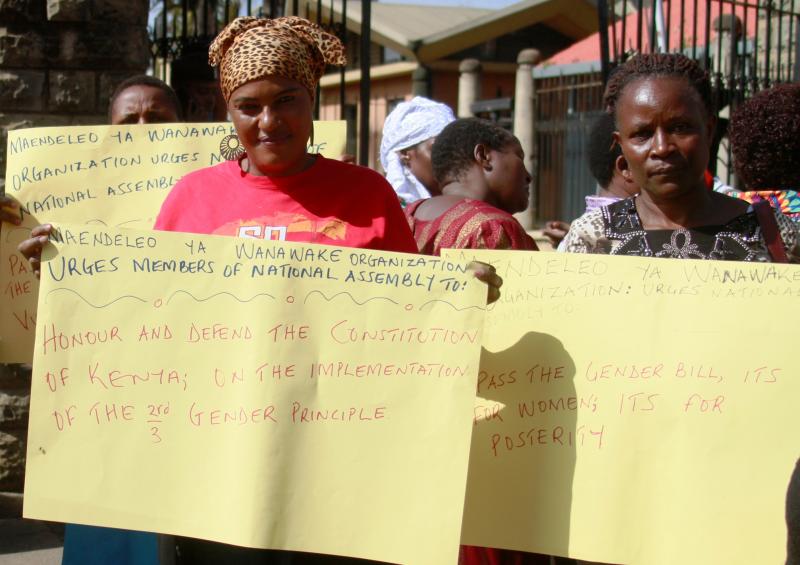 MAENDELEO YA WANAWAKE
ORGANIZATION URGES
NATIONAL ASSEMBLY
MAENDELEO YA WANAWAKE ORGANIZATION
URGES MEMBERS OF NATIONAL ASSEMBLY TO:
HONOUR AND DEFEND THE CONSTITUTION
OF KENYA; ON THE IMPLEMENTATION
OF THE 2rd/3 GENDER PRINCIPLE
MAENDELEO YA WANAWAKE
ORGANIZATION: URGES NATIONAL
ASSEMBLY TO:
PASS THE GENDER BILL, ITS
FOR WOMEN; ITS FOR
POSTERITY